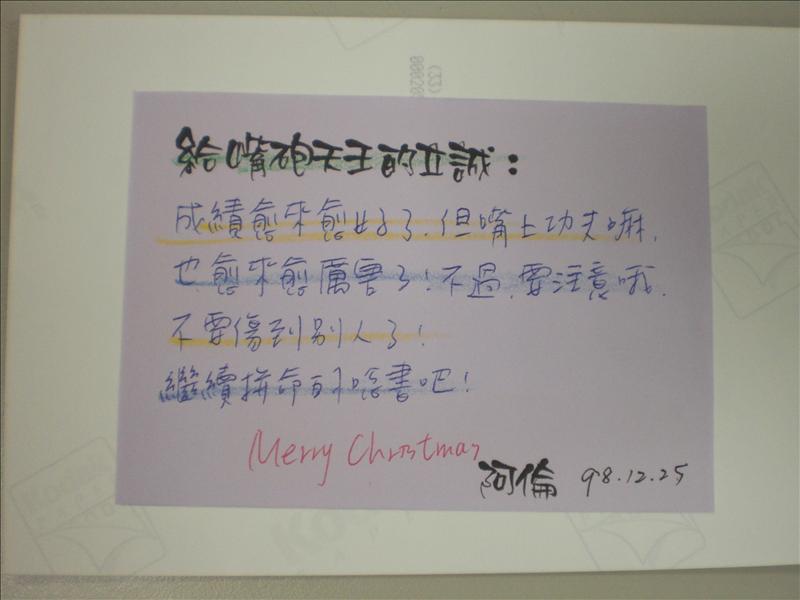 (33)
給嘴砲天王的亚誠:
成績愈來愈好了,但嘴上功夫嘛,
也愈來愈厲害了!不過,要注意哦,
不要傷到別人了!
繼續拼命的唸書吧!
Merry Christmas
阿倫 98.12.25